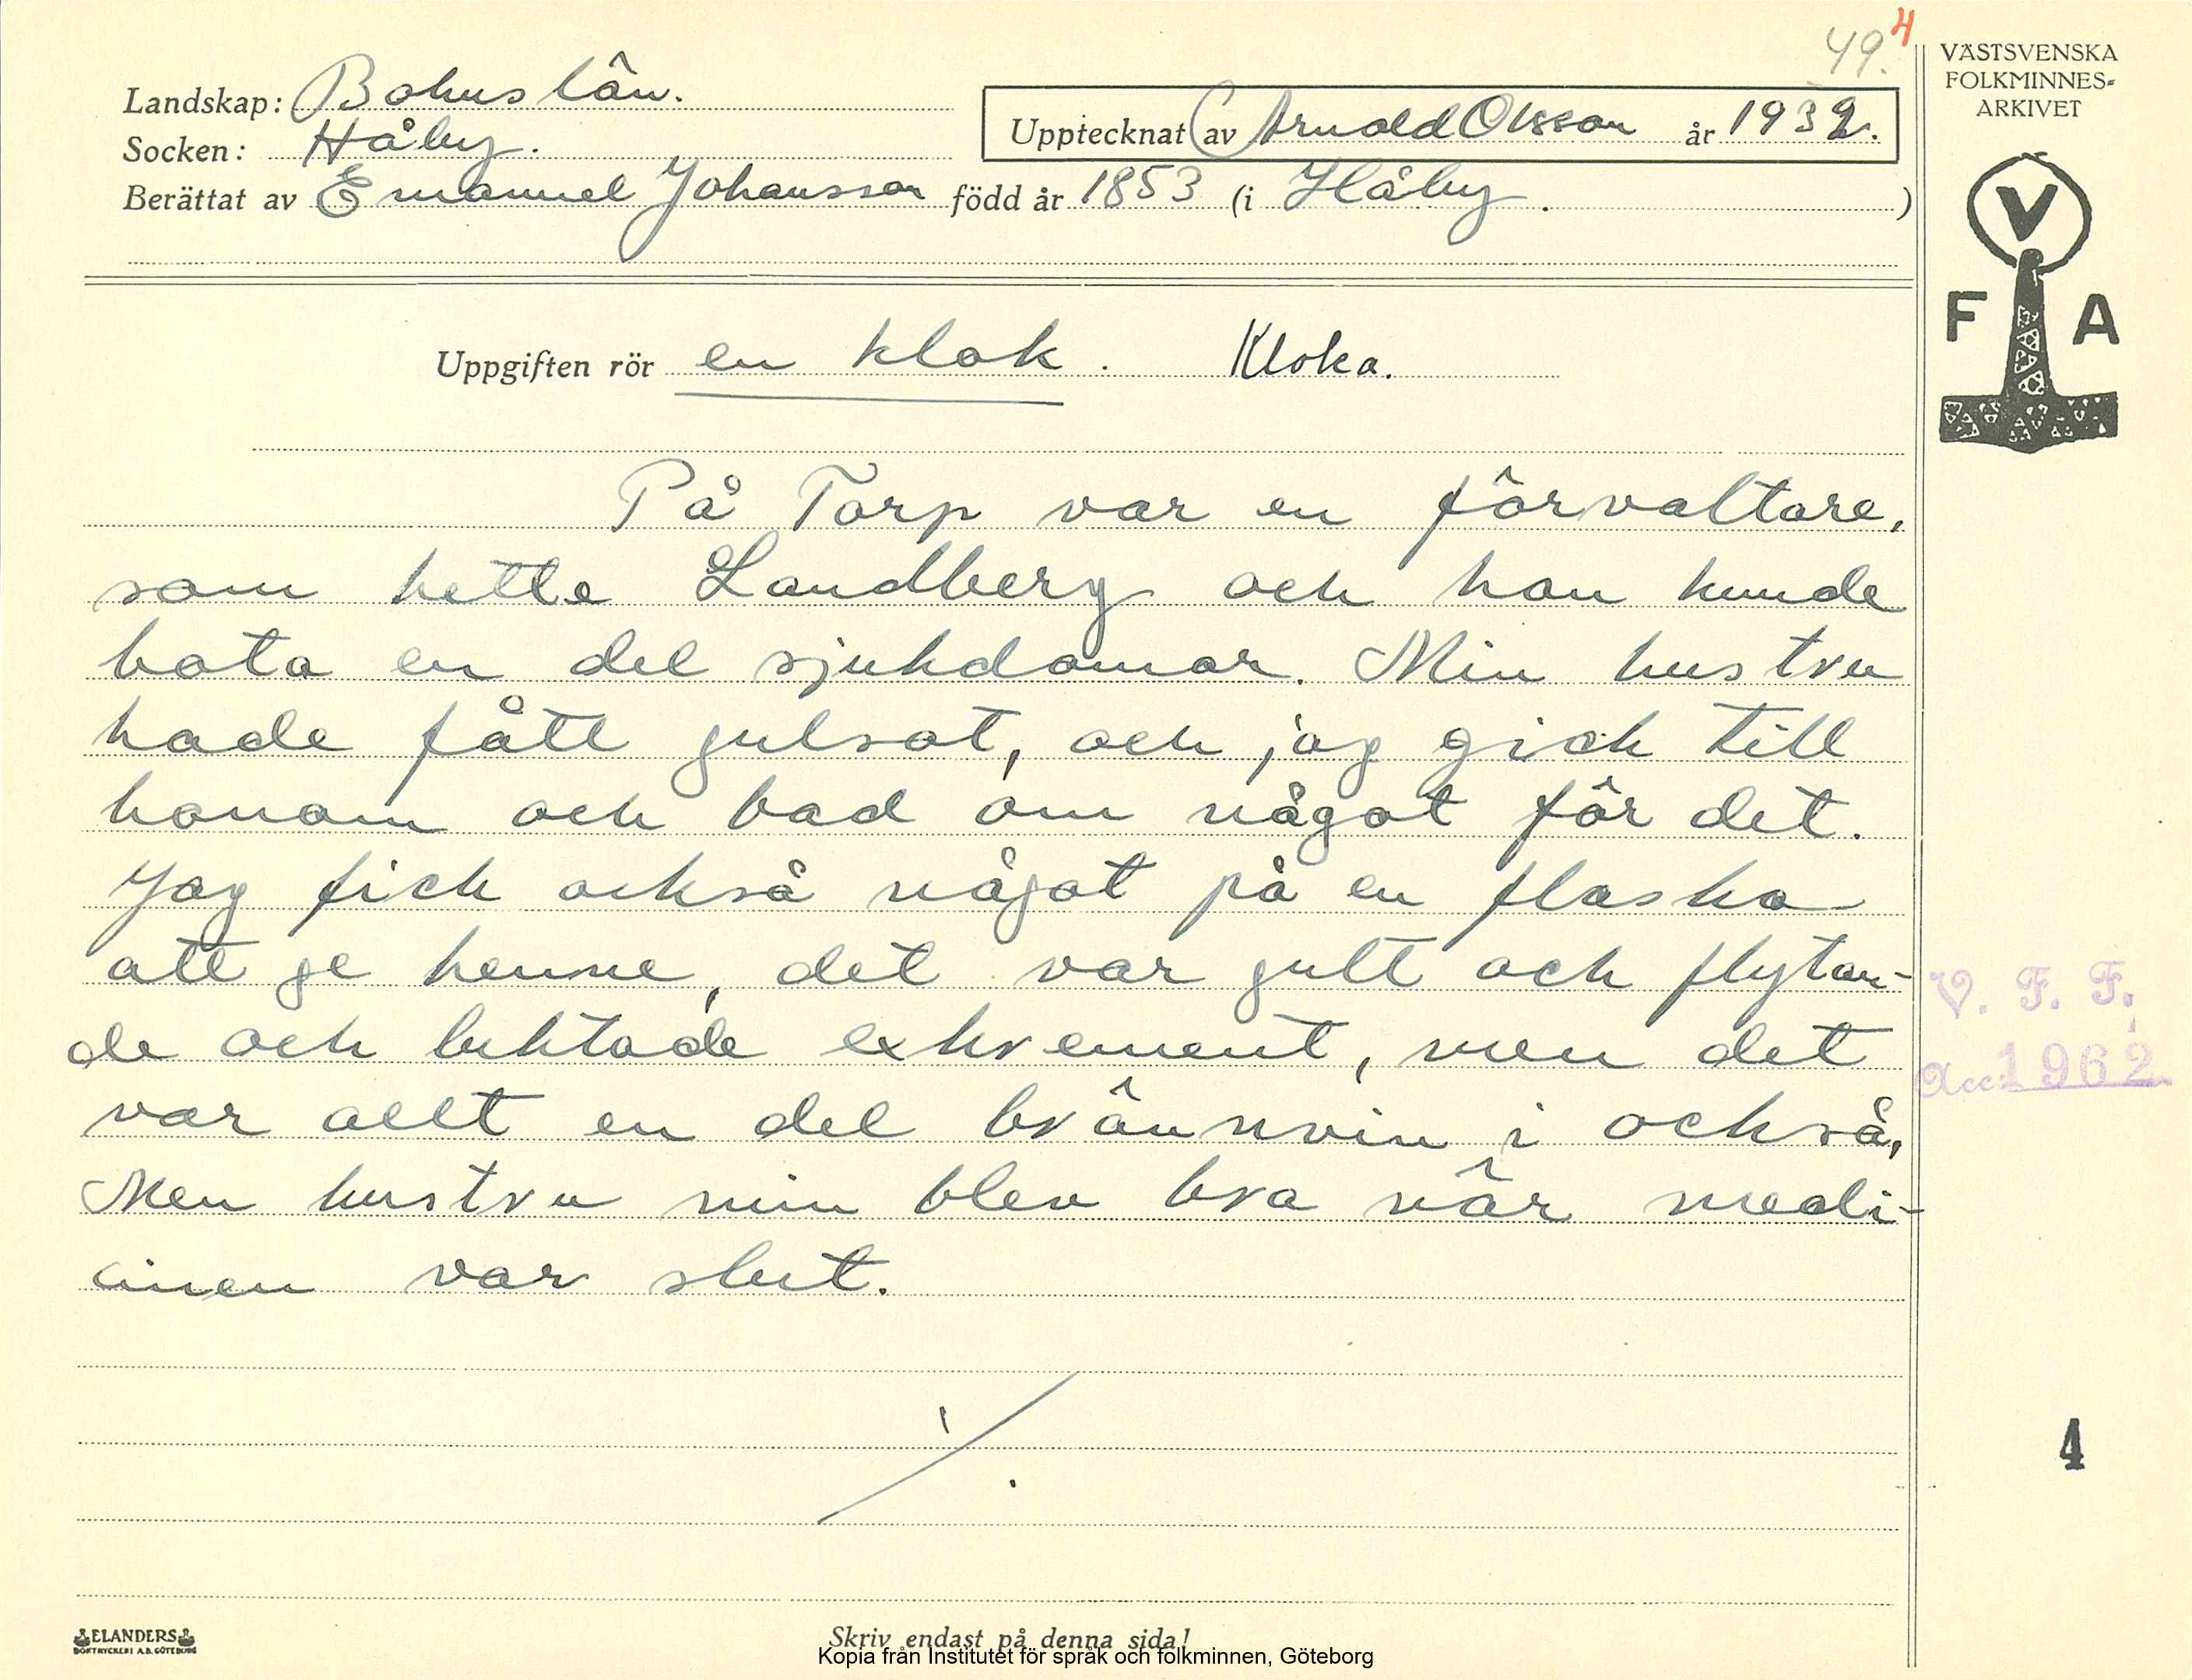 49. 4
VÄSTSVENSKA
FOLKMINNES=
ARKIVET
Landskap: Bohuslän.
Upptecknat av Arnold Olsson år 1932.
Socken: Håby.
Berättat av Emanuel Johansson född år 1853 (i Håby. )
V
F A
Uppgiften rör en klok. Kloka.
På Torp var en förvaltare,
som hette Landberg och han kunde
bota en del sjukdomar. Min hustru
hade fått gulsot, och jag gick till
honom och bad om något för det.
Jag fick också något på en flaska
att ge henne, det var gult och flytan-
de och luktade exkrement, men det
var allt en del brännvin i också,
Men hustru min blev bra när medi-
cinen var slut.
V. F. F.
Acc 1962
4
ELANDERS
BOKTRYCKERI A.B. GÖTEBORG
Skriv endast på denna sida!
Kopia från Institutet för språk och folkminnen, Göteborg